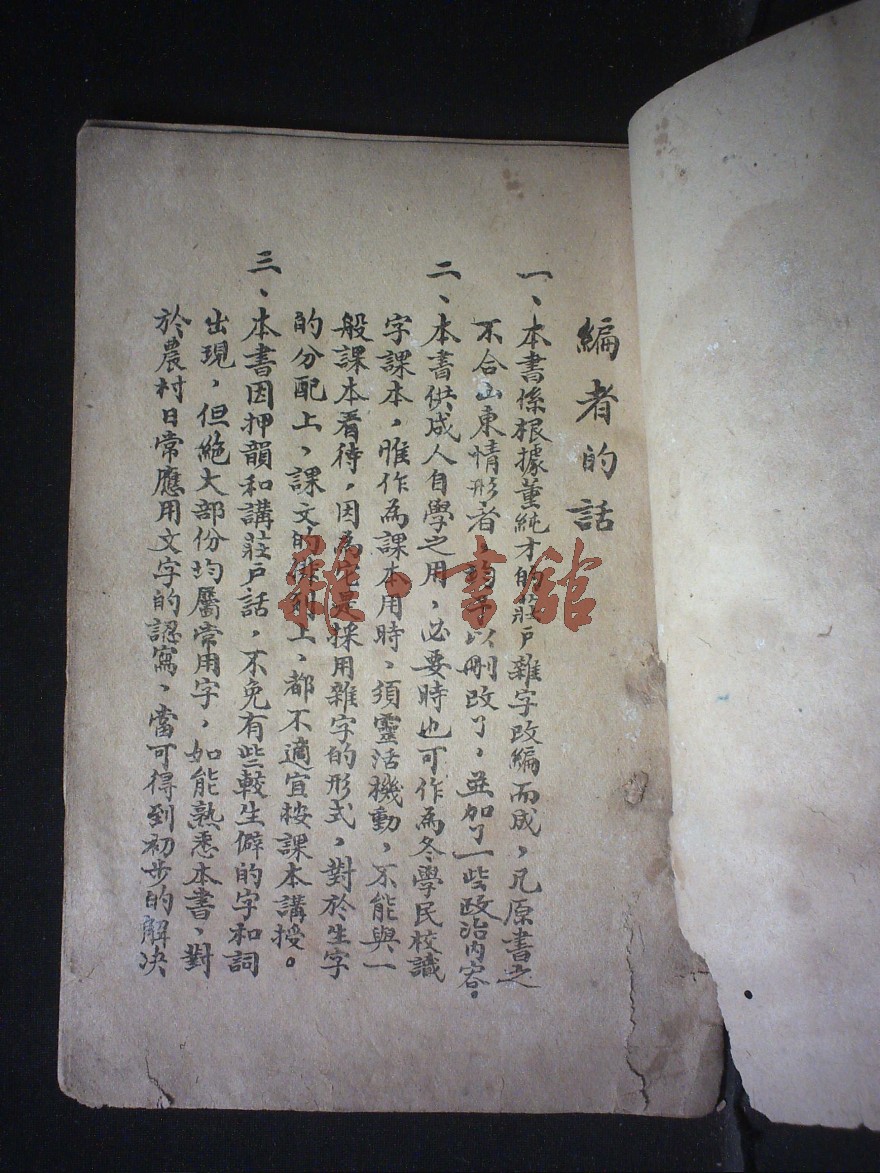 編者的話
一、本書係根據董純才的莊戶雜字改編而成，凡原書之
不合山東情形者，均予以刪改了，並加了一些政治內容。
二、本書供成人自學之用，必要時也可作為冬學民校識
字課本，惟作為課本用時，須靈活機動，不能與一
般課本看待，因為它是採用雜字的形式，對於生字
的分配上，課文的排列上，都不適宜按課本講授。
三、本書因押韻和講莊戶話，不免有些較生僻的字和詞
出現，但絕大部份均屬常用字，如能熟悉本書，對
於農村日常應用文字的認寫，當可得到初步的解决
雜·書館